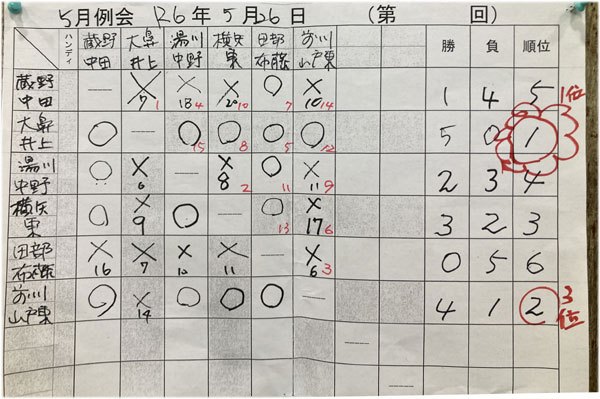 5月例会 '26年 5月26日 (第 回)
ハンディ 蔵野 大鼻 湯川 横矢 田部 前川 勝 負 順位
中田 井上 中野 東 布藤 山戸東
蔵野 — × × × ○ × 1 4 5 1位
中田 7 1 18 4 20 10 7 10 14
大鼻 ○ — ○ ○ ○ ○ 5 0 1
井上 15 8 5 12
湯川 ○ × — × ○ × 2 3 4
中野 6 8 2 11 11 9
横矢 ○ × ○ — ○ × 3 2 3
東 9 13 17 6
田部 × × × × — × 0 5 6
布藤 16 7 10 11 6 3
前川 ○ × ○ ○ ○ — 4 1 2 3位
山戸東 14
—
—